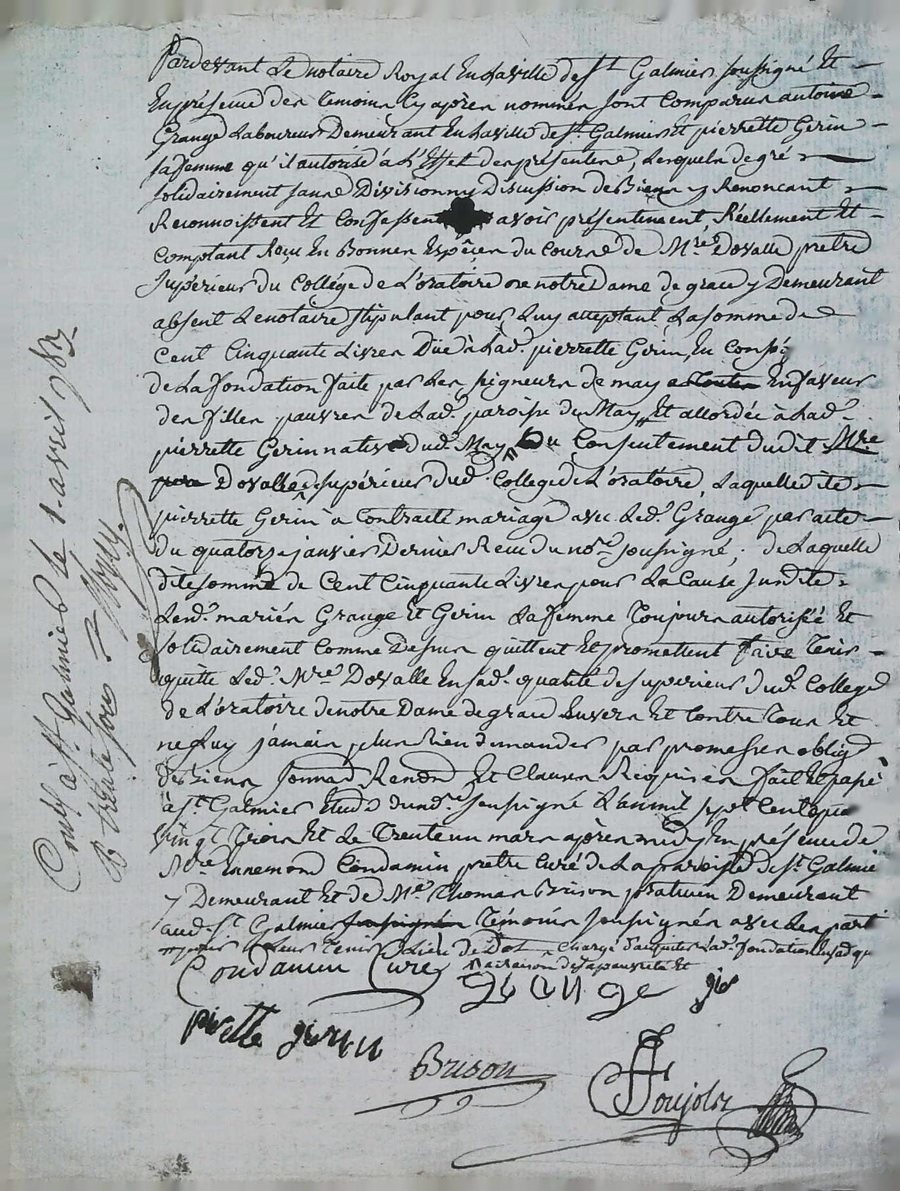 Pardevant Le notaire Royal En Laville de St Galmier soussigné Et
En présence des Témoins Cy après nommés sont Comparus antoine
Grange Laboureur Demeurant En Laville de St. Galmier Et pierrette Gerin
sa femme qu'il autorise à L'Effet des présentes, Lesquels de gré
solidairement sans Division ny Discussion de Biens y Renoncant
Reconnoissent Et Confessent avoir présentement Réellement Et
Comptant Reçu En Bonnes Espèces du Cours de Mre Dovalle prêtre
Supérieur du Collége de L'oratoire de notre Dame de grace y Demeurant
absent Le notaire stipulant pour Luy acceptant La somme de
Cent Cinquante Livres Düe à Lad. pierrette Gerin, En Conséq
de La fondation faite par Les seigneurs de may En faveur
des filles pauvres de Lad. paroisse du May Et accordée à Lad.
pierrette Gerin native dud. May, Du Consentement dudit Mre
Dovalle supérieur dud. College de L'oratoire, Laquelle dite
pierrette Gerin a Contracté mariage avec Led. Grange par acte
du quatorze janvier Dernier Recu du nore soussigné; de Laquelle
dite somme de Cent Cinquante Livres pour La Cause susdite
Lesd. mariés Grange et Gerin La femme Toujours autorisée Et
Solidairement Comme Dessus quittent Et promettent faire Tenir
quitte Led. Mre Dovalle En sad. qualité de supérieur dud. College
de L'oratoire de notre Dame de grace Envers Et Contre Tous Et
ne Luy jamais plus Rien demander par promesses oblig
de Biens Et Clauses Requises fait Et passé
à St. Galmier Etude dud. nre soussigné L'an mil sept Cent quatre
vingt Trois Et Le Trente un mars après midy En présence de
Mre. Ennemond Condamin prêtre Curé de La paroisse de St. Galmier
y Demeurant Et de Me. Thomas Brison praticien Demeurant
aud. St. Galmier Témoins soussignés avec Les parties
pour Leur Tenir Lieu de Dot Chargé d'acquiter Lad. fondation
à raison de sa pauvreté Et
Condamin Curé
grange
pierette gerin
Brison
Poujolz
Conlé à St. Galmier Le 1. avril 1783
R trente sous